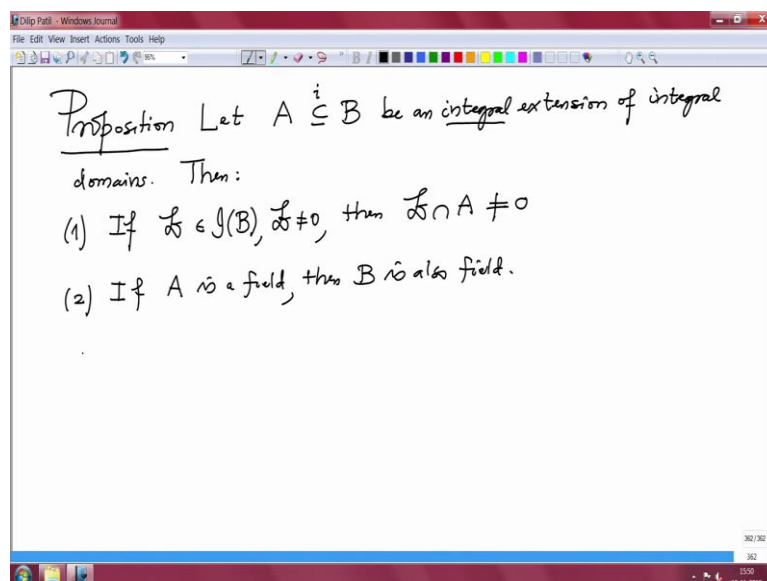 Dilip Patil - Windows Journal
File Edit View Insert Actions Tools Help
Proposition Let A ⊆ B be an integral extension of integral
domains. Then:
(1) If 𝔟 ∈ 𝓘(B), 𝔟 ≠ 0, then 𝔟 ∩ A ≠ 0
(2) If A is a field, then B is also field.
362/362
362
15:50